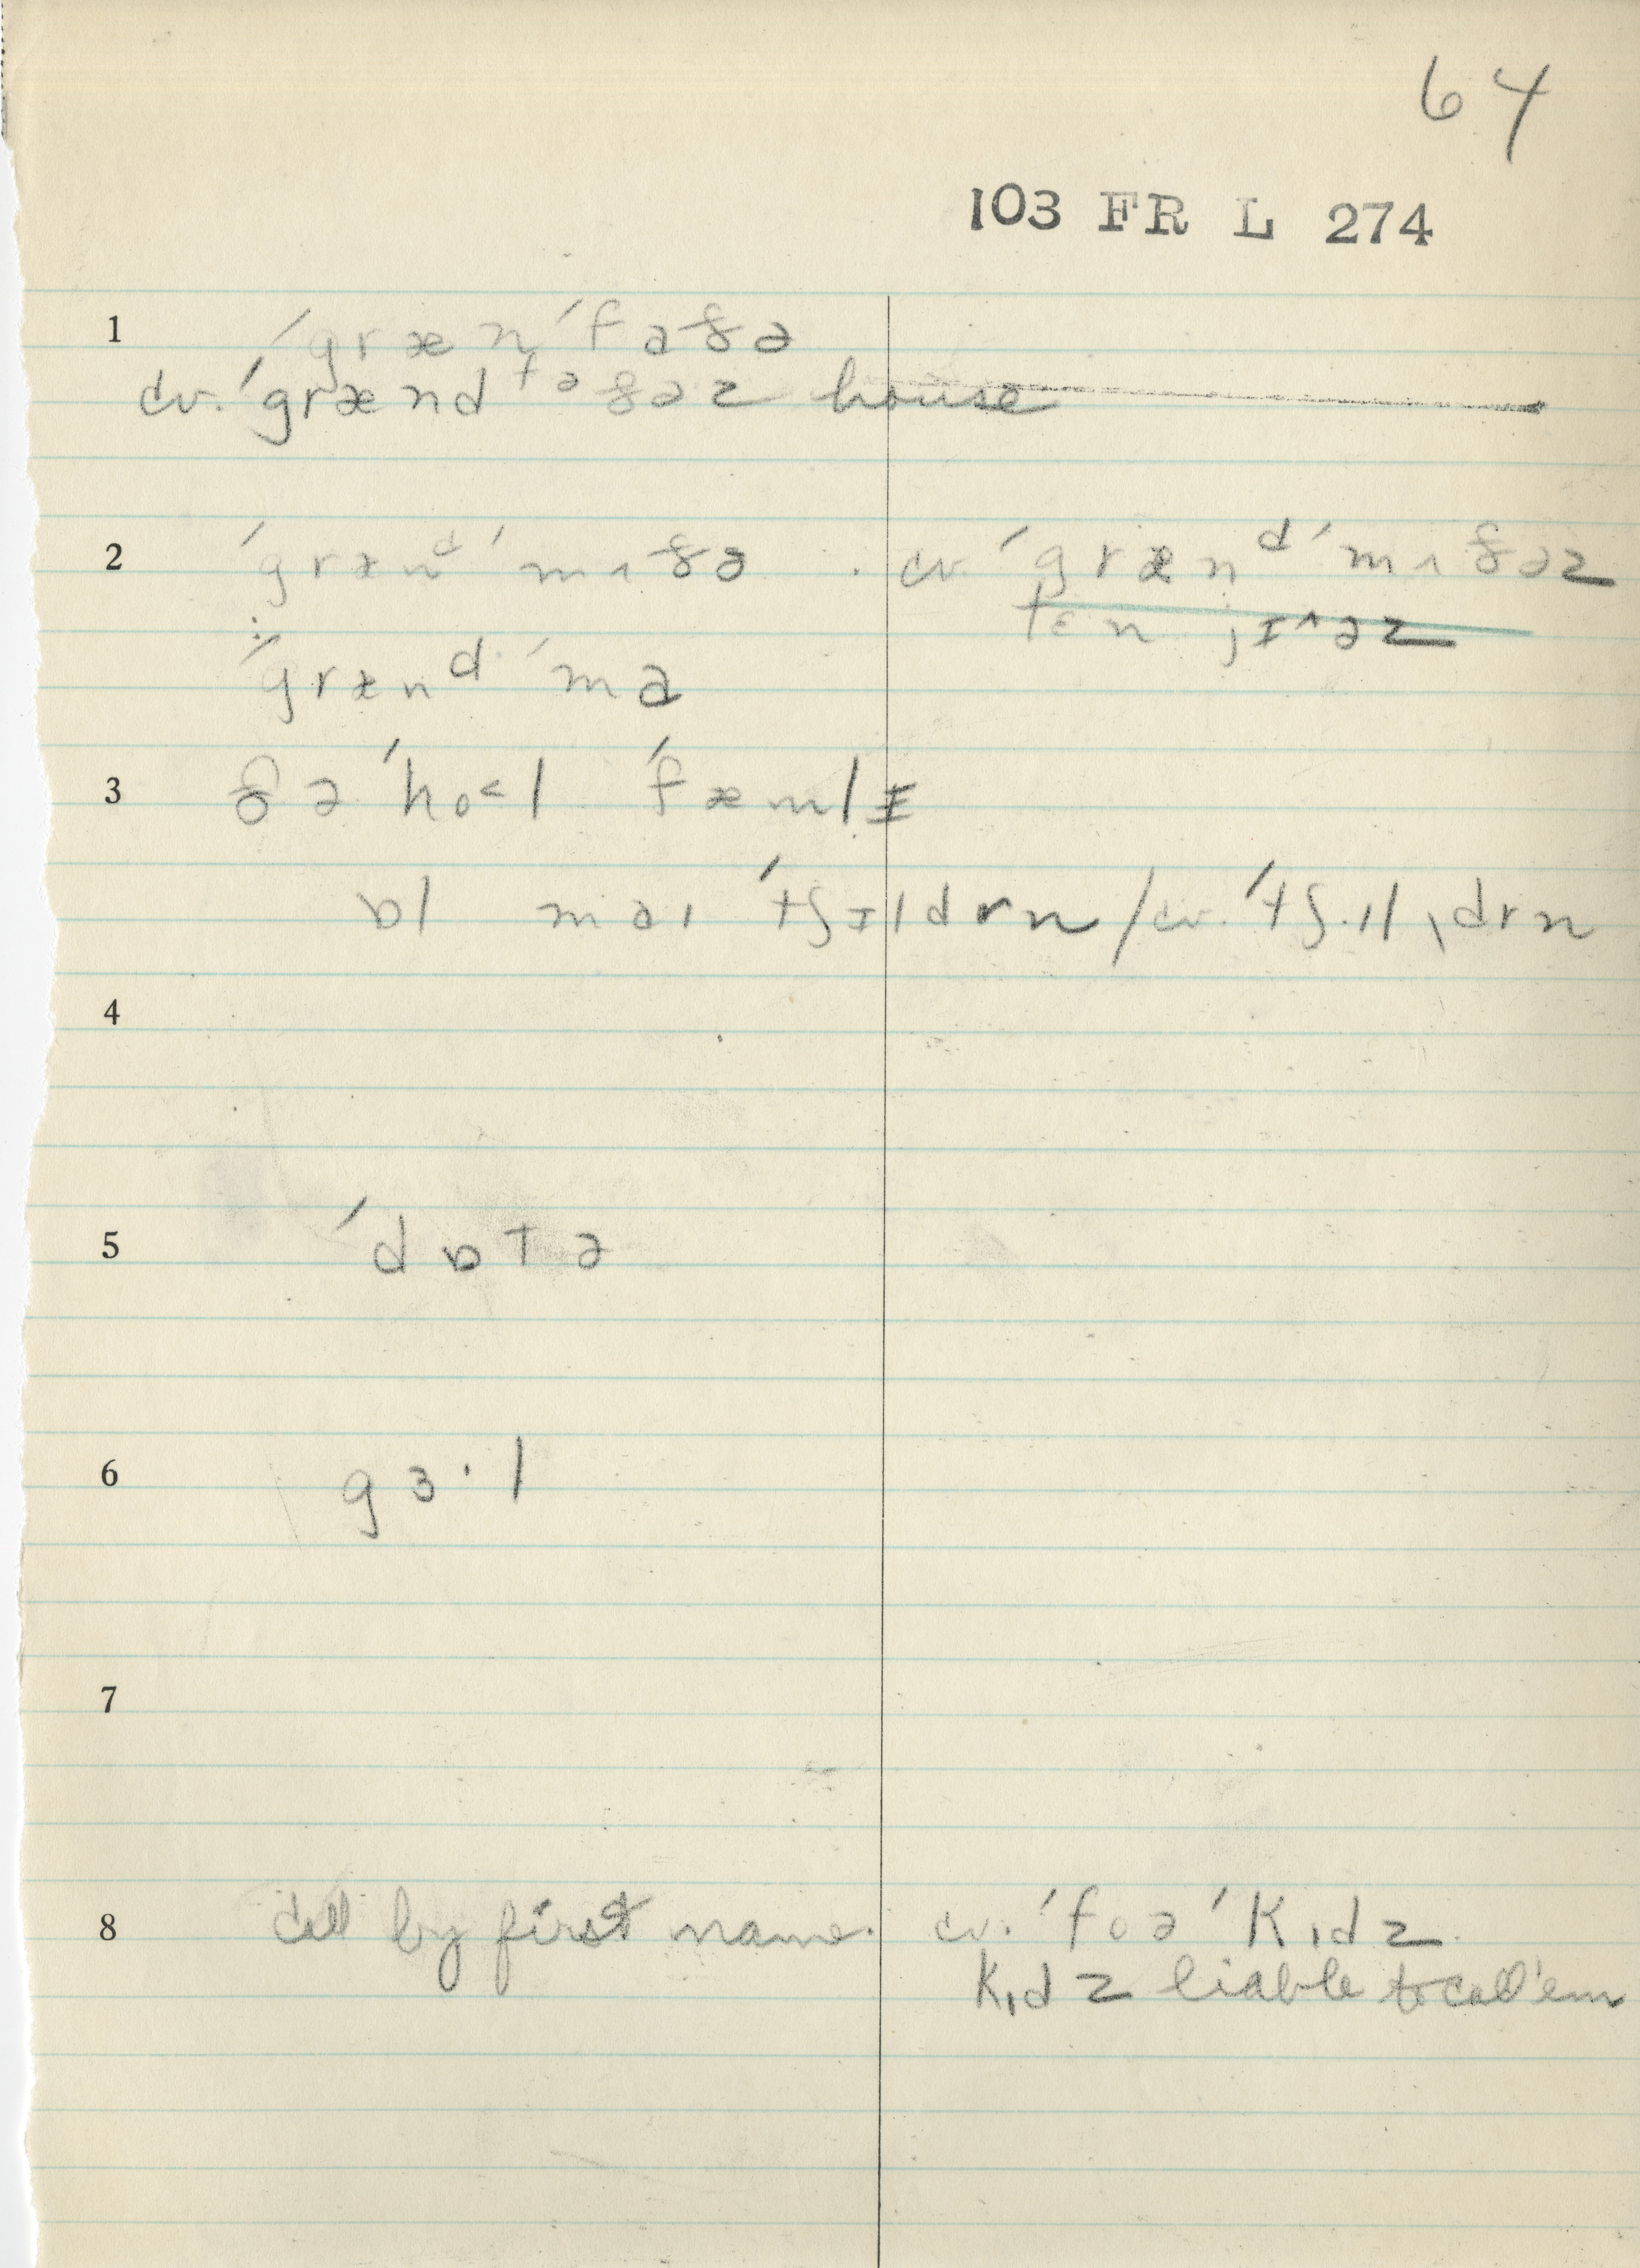 64
103 FR L 274
1 ˈgræn ˈfaðə
cv. ˈgrænd faðəz house
2 ˈgrænᵈ ˈmʌðə . cv. ˈgrænᵈ ˈmʌðəz
tɛn jɪ^əz
ˈgrænᵈ ˈma
3 ðə ˈho<l ˈfæmlɪ
ɒl maɪ ˈtʃɪldrn / cv. ˈtʃɪl ˌdrn
4
5 ˈdɒtə
6 gɜ·l
7
8 call by first name. cv. ˈfoə ˈkɪdz
kɪdz liable to call 'em